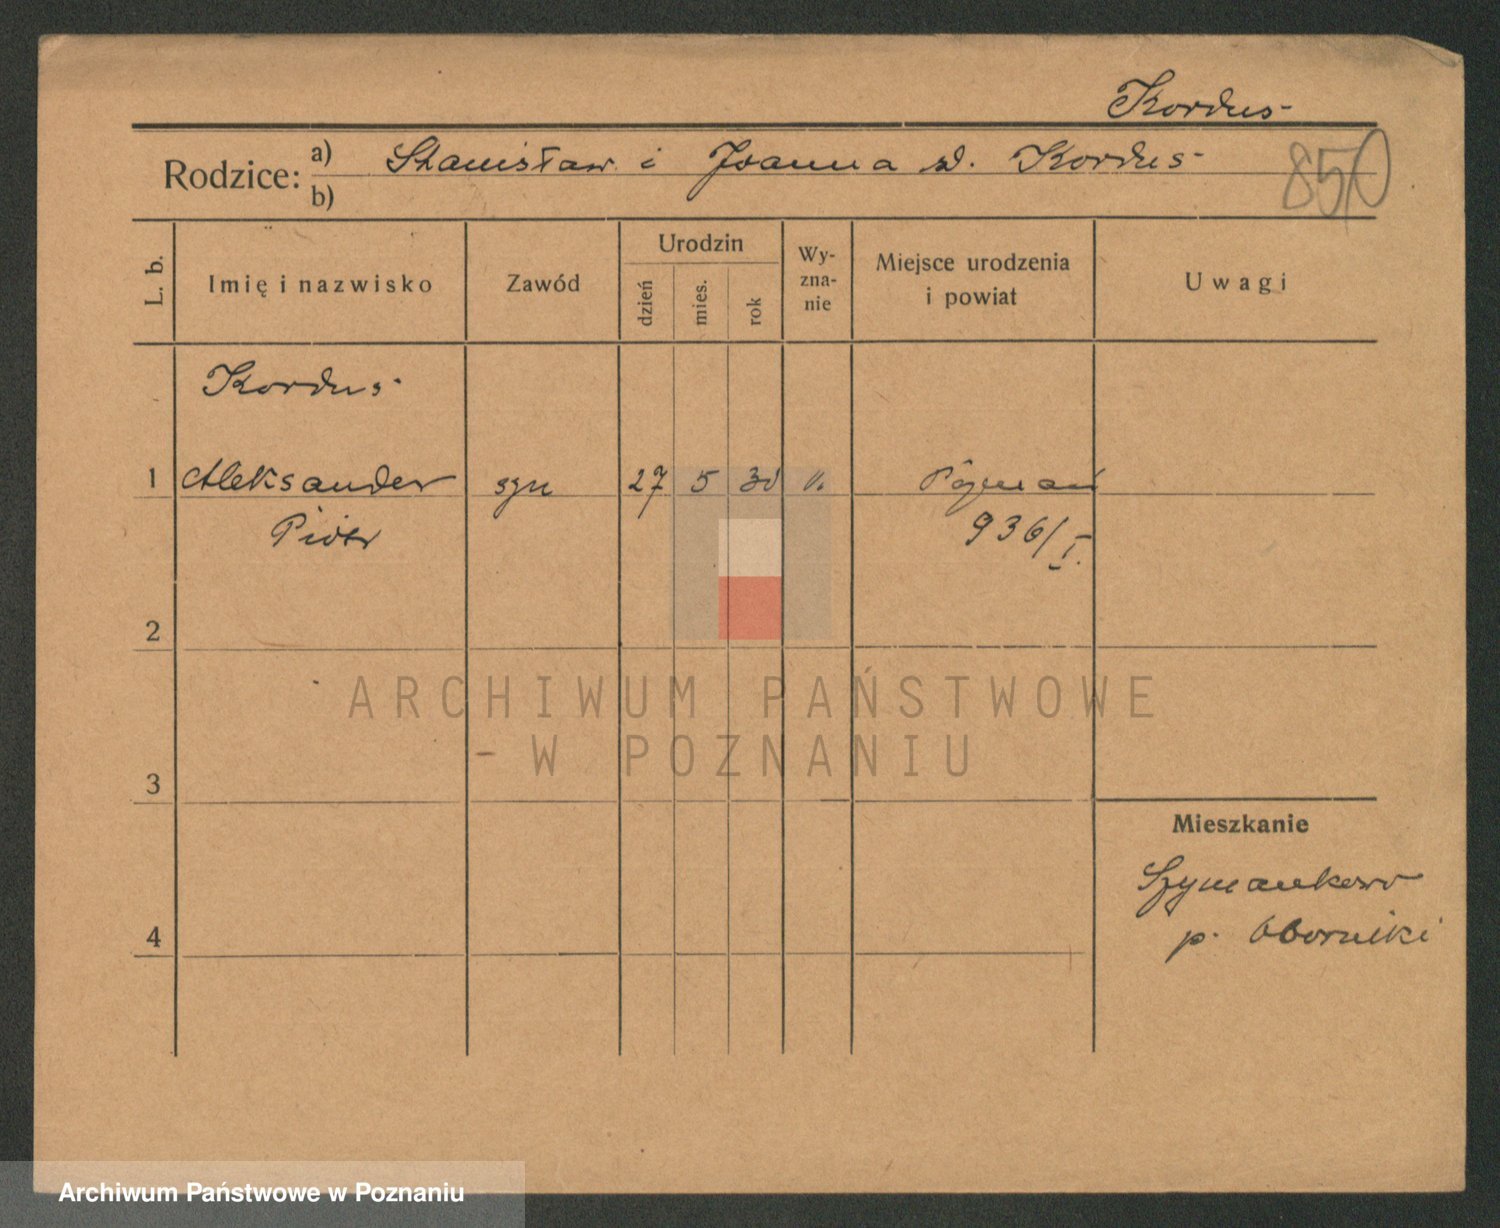 Kordus
Rodzice: a) Stanisław i Joanna d. Kordus
b)
850
L. b.
Imię i nazwisko
Zawód
Urodzin
dzień
mies.
rok
Wy-
zna-
nie
Miejsce urodzenia
i powiat
Uwagi
Kordus
1 Aleksander syn 27 5 30 Poznań
Piotr 936/I.
2
ARCHIWUM PAŃSTWOWE
W POZNANIU
3
Mieszkanie
Szymankowo
4
p. Oborniki
Archiwum Państwowe w Poznaniu